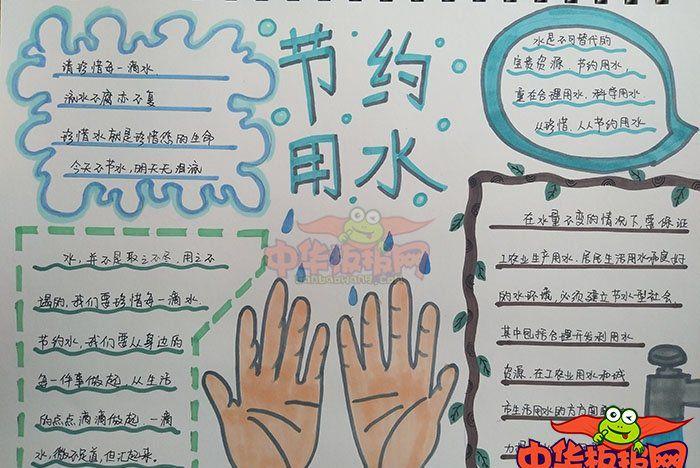 节约
用水
请珍惜每一滴水.
流水不腐亦不复
珍惜水就是珍惜您的生命
今天不节水,明天无泪流
水是不可替代的
宝贵资源、节约用水,
重在合理用水、科学用水
从珍惜、人人节约用水
水,并不是取之不尽、用之不
竭的,我们要珍惜每一滴水.
节约水,我们要从身边的
每一件事做起、从生活
的点点滴滴做起、一滴
水,微不足道,但汇起来。
在水量不变的情况下,要保证
工农业生产用水、居民生活用水和良好
的水环境,必须建立节水型社会。
其中包括合理开发利用水
资源、在工农业用水和城
市生活用水的方方面
中华板报网
banbaowang.com
中华板报网